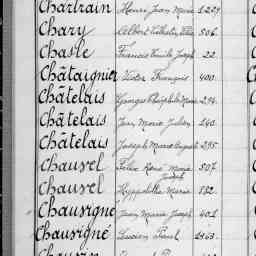 Chartrain Henri Jean Marie 1229
Chary Albert 506
Chasle Francis Emile Joseph 22
Châtaignier Victor François 400
Châtelais Georges Marie 294
Châtelais Jean Marie Julien 140
Châtelais Joseph Marie Auguste 295
Chauvel Félix René Marie Joseph 507
Chauvel Hyppolitte Marie 132
Chausigné Jean Marie Joseph 401
Chausigné Lucien Paul 1363